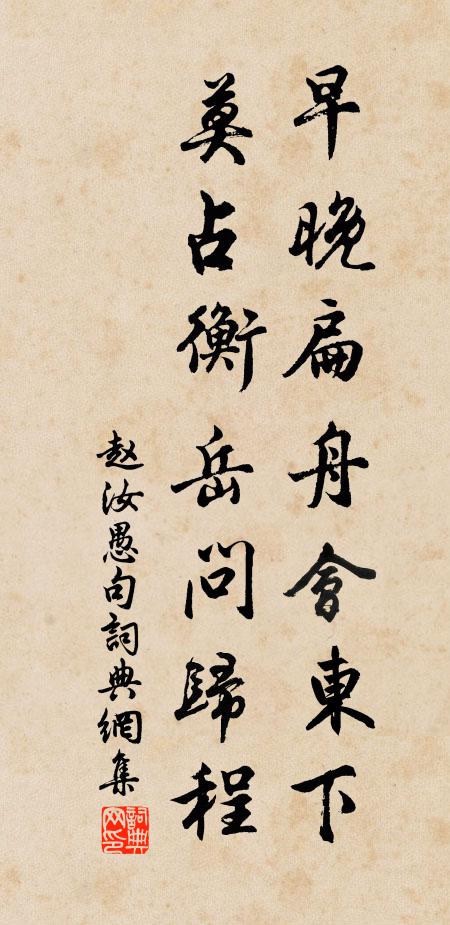 早晚扁舟會東下
莫占衡岳問歸程
赵汝愚句詞典網集
詞典網印